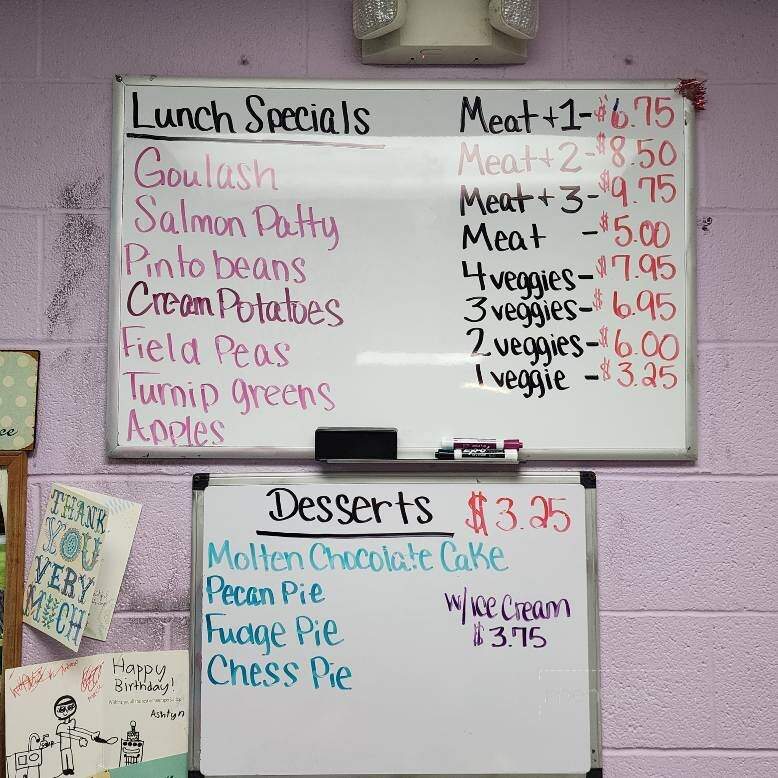 Lunch Specials
Goulash
Salmon Patty
Pinto beans
Cream Potatoes
Field Peas
Turnip greens
Apples
Meat +1-$6.75
Meat+2-$8.50
Meat + 3-$9.75
Meat -$5.00
4 veggies-$7.95
3 veggies-$6.95
2 veggies-$6.00
1 veggie -$3.25
EXPO
Desserts $3.25
Molten Chocolate Cake
Pecan Pie
Fudge Pie
Chess Pie
w/ice cream
$3.75
THANK
YOU
VERY
MUCH
Happy
Birthday!
Ashtyn